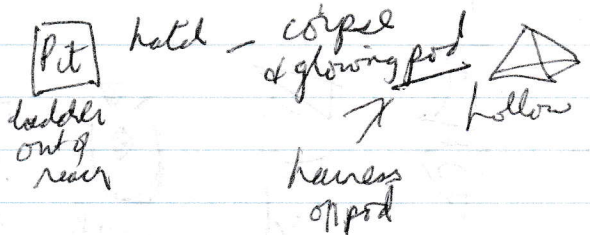 Pit hatch – corpse
& glowing pod
ladder
out of
reach
hollow
harness
on pod